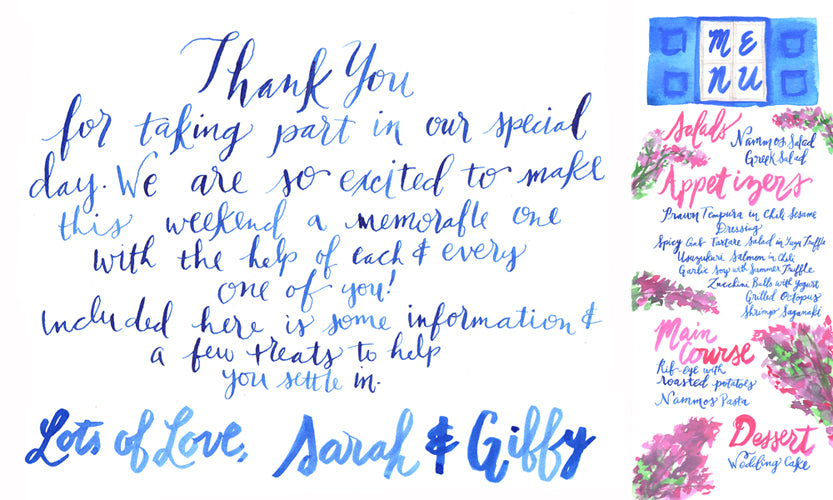 Thank You
for taking part in our special
day. We are so excited to make
this weekend a memorable one
with the help of each & every
one of you!
Included here is some information &
a few treats to help
you settle in.
Lots of Love, Sarah & Giffy
ME
NU
Salads
Nammos Salad
Greek Salad
Appetizers
Prawn Tempura in Chili Sesame
Dressing
Spicy Crab Tartare Salad in Yuzu Truffle
Usuzukuri Salmon in Chili
Garlic Soy with Summer Truffle
Zucchini Balls with Yogurt
Grilled Octopus
Shrimp Saganaki
Main
Course
Rib-eye with
roasted potatoes
Nammos Pasta
Dessert
Wedding Cake